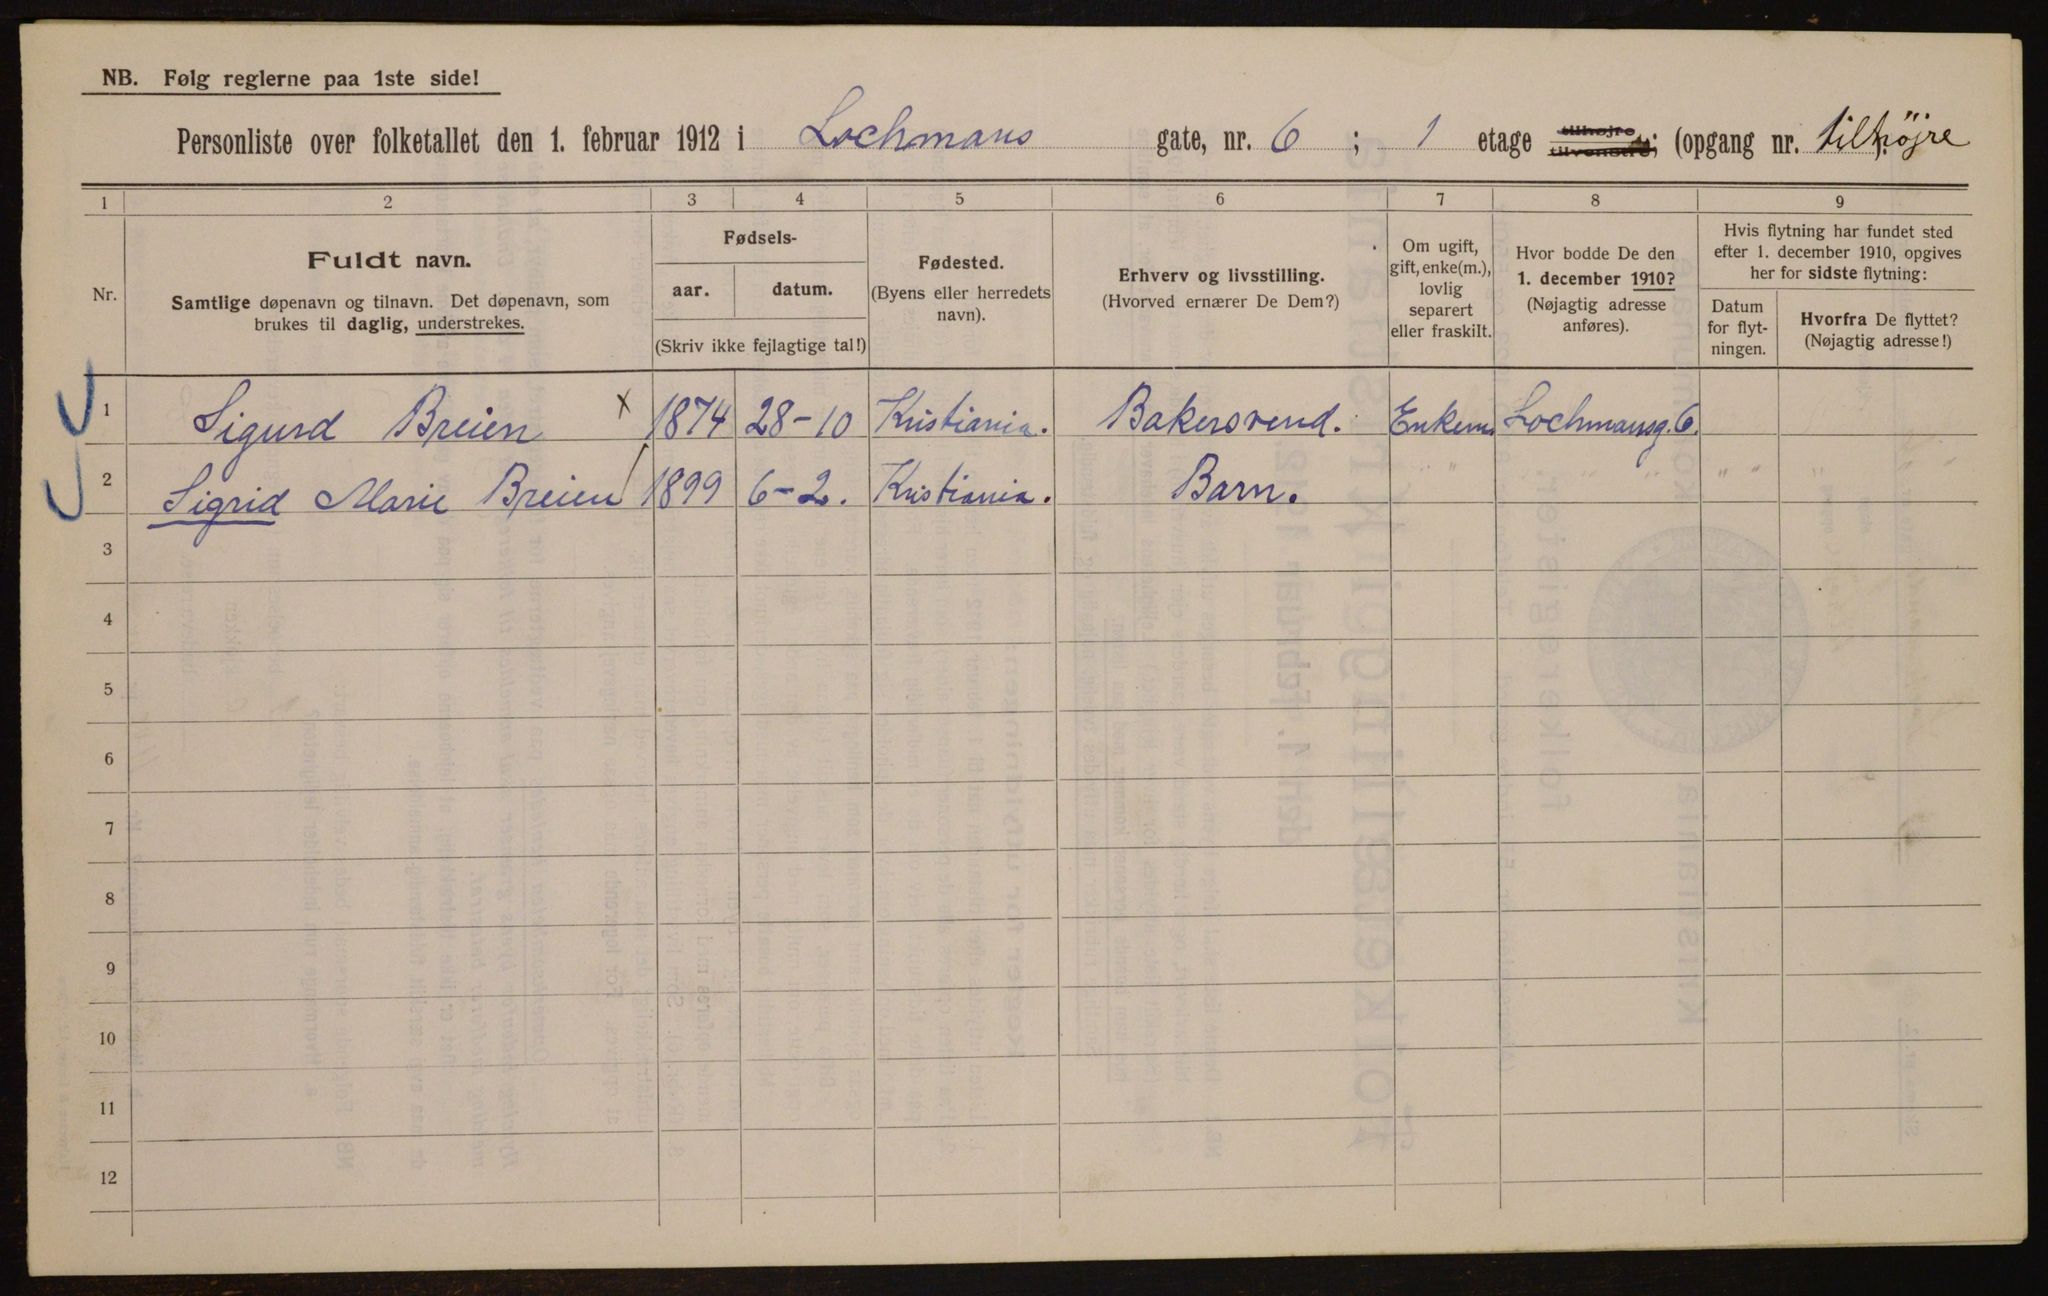 NB. Følg reglerne paa 1ste side!
Personliste over folketallet den 1. februar 1912 i Lochmans gate, nr. 6 ; 1 etage tilhøjre tilvenstre; (opgang nr. tilhøjre
1 2 3 4 5 6 7 8 9
Nr.
Fuldt navn.
Samtlige døpenavn og tilnavn. Det døpenavn, som
brukes til daglig, understrekes.
Fødsels-
aar. datum.
(Skriv ikke fejlagtige tal!)
Fødested.
(Byens eller herredets
navn).
Erhverv og livsstilling.
(Hvorved ernærer De Dem?)
Om ugift,
gift, enke(m.),
lovlig
separert
eller fraskilt.
Hvor bodde De den
1. december 1910?
(Nøjagtig adresse
anføres).
Hvis flytning har fundet sted
efter 1. december 1910, opgives
her for sidste flytning:
Datum
for flyt-
ningen.
Hvorfra De flyttet?
(Nøjagtig adresse!)
1 Sigurd Breien x 1874 28-10 Kristiania. Bakersvend. Enkem. Lochmansg. 6.
2 Sigrid Marie Breien 1899 6-2. Kristiania. Barn.
3
4
5
6
7
8
9
10
11
12